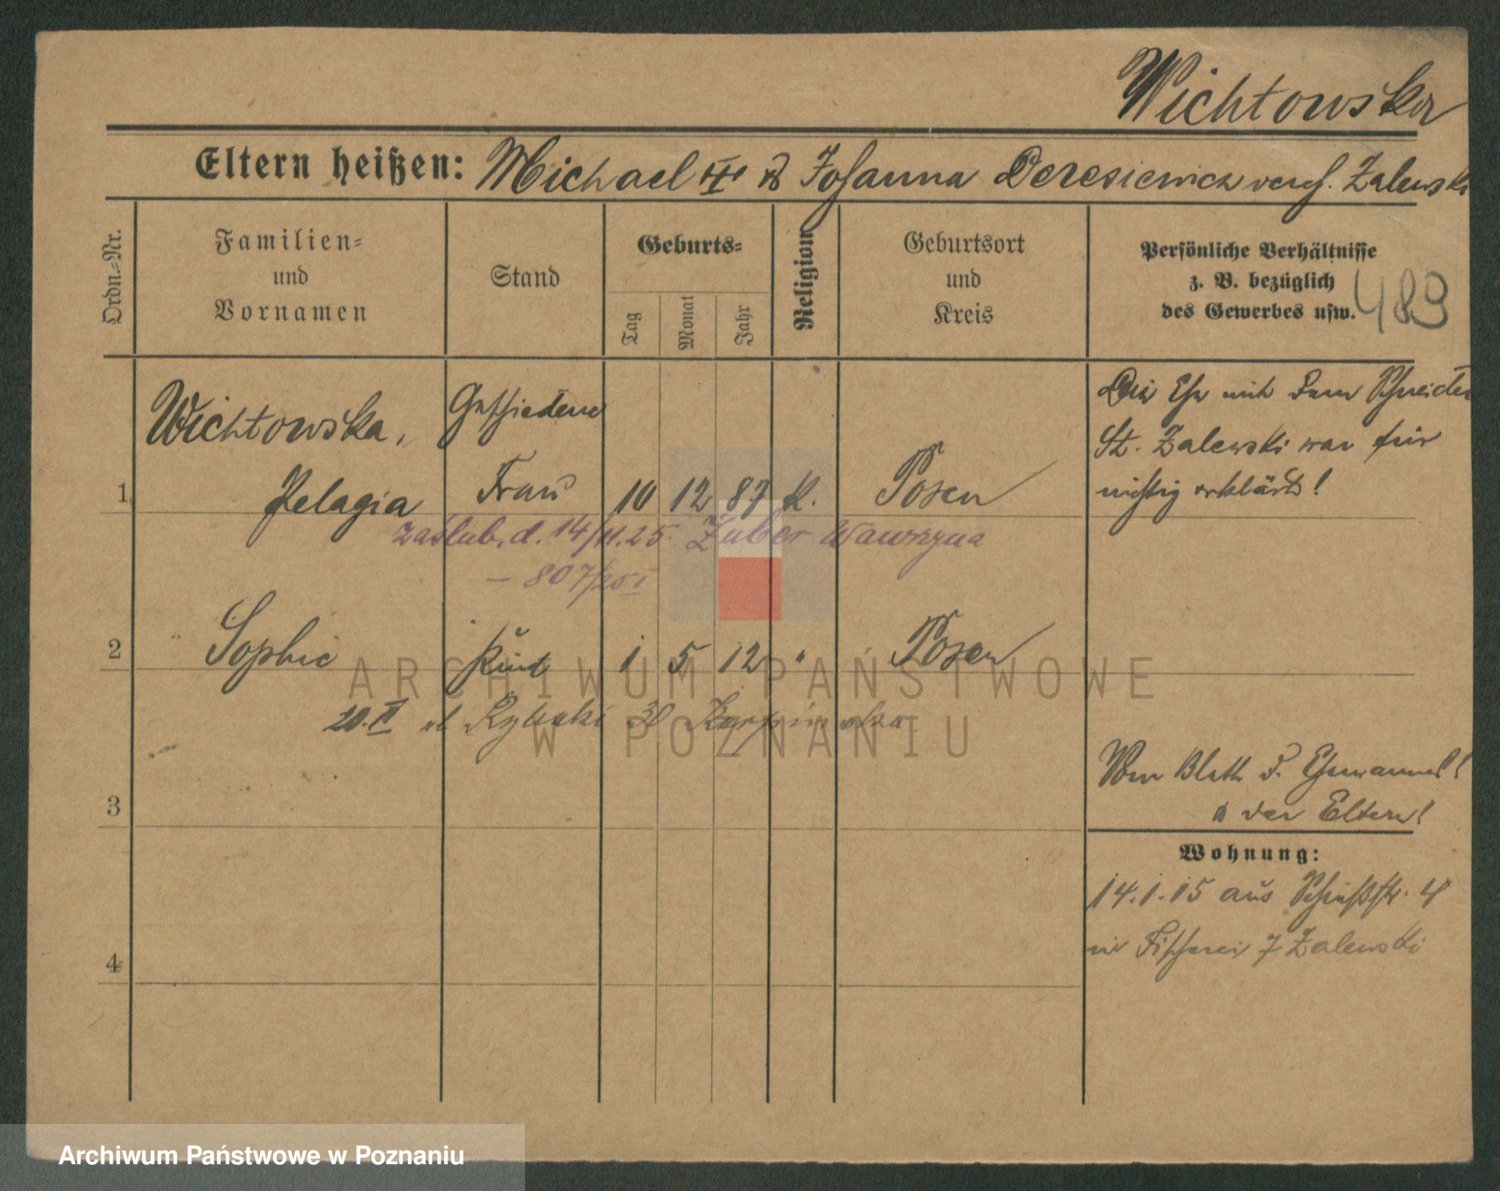 Wichtowska
Eltern heißen: Michael ttt & Johanna Deresiewicz verh. Zalewski
Ordn.=Nr.
Familien=
und
Vornamen
Stand
Geburts=
Tag
Monat
Jahr
Religion
Geburtsort
und
Kreis
Persönliche Verhältnisse
z. B. bezüglich
des Gewerbes usw.
489
Wichtowska, Geschiedene
1 Pelagia Frau 10 12 87 K. Posen
Die Ehe mit dem Schneider
St. Zalewski war für
nichtig erklärt!
zaślub. d. 14/11.25 Zuber Wawrzyna
— 807/25 I
2 " Sophie Kind 1 5 12 " Posen
20. II
3
Vom Blatt d. Ehemannes!
" der Eltern!
Wohnung:
14.1.15 aus Schießstr. 4
in Fischerei 7 Zalewski
4
ARCHIWUM PAŃSTWOWE
W POZNANIU
Archiwum Państwowe w Poznaniu